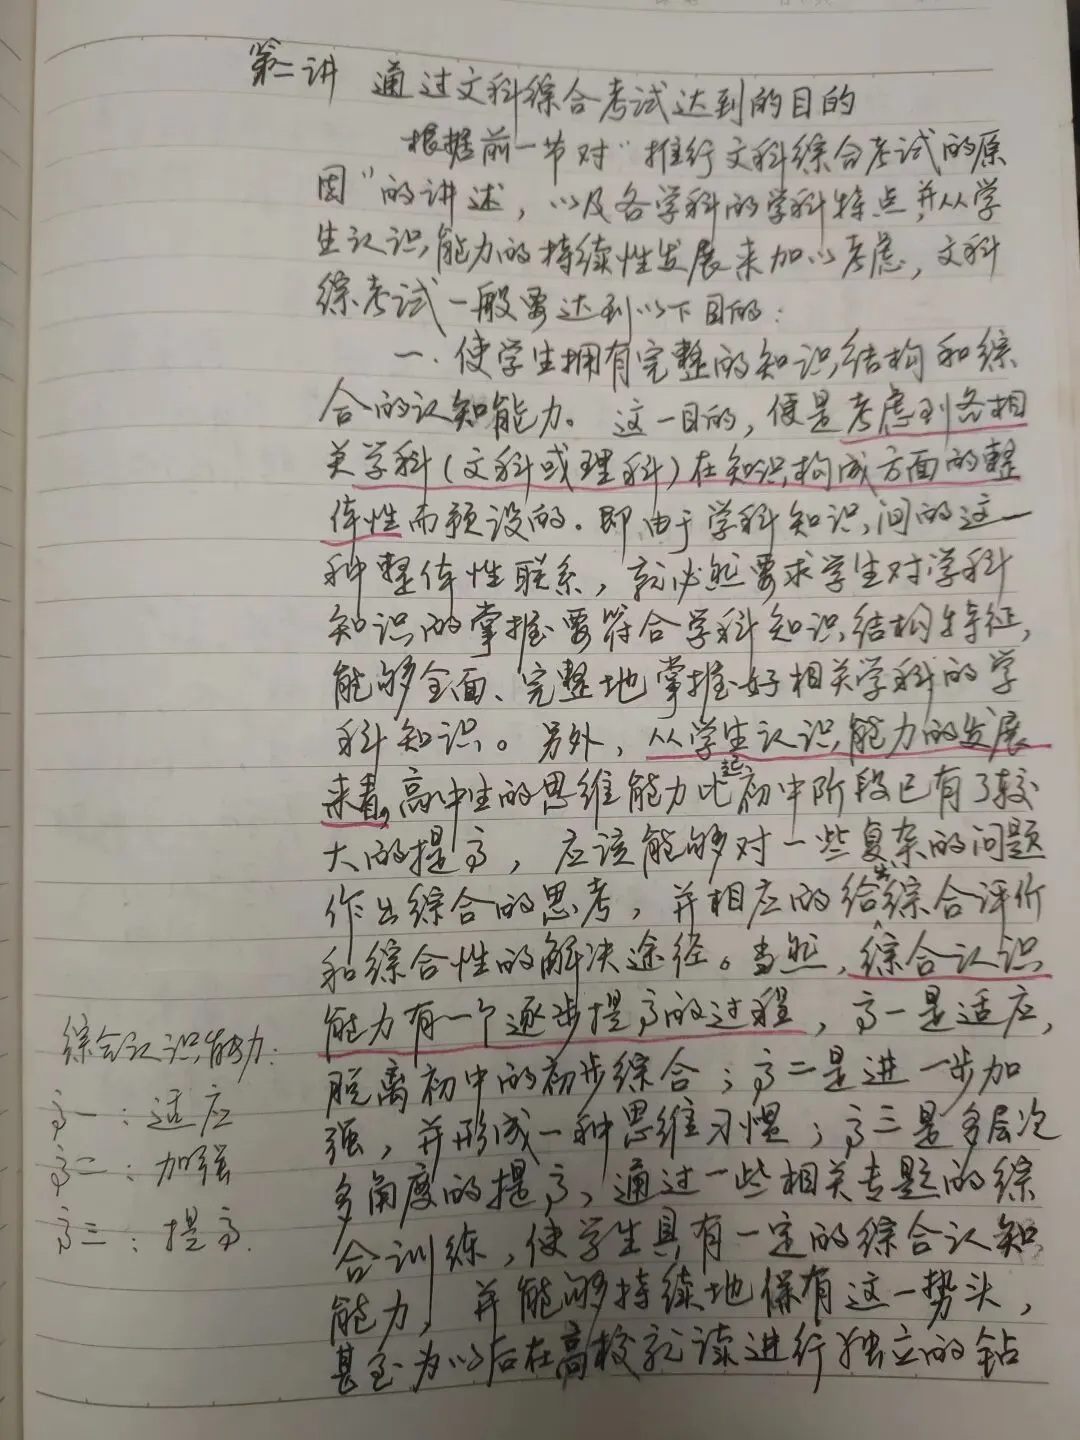 第二讲 通过文科综合考试达到的目的
根据前一节对"推行文科综合考试的原
因"的讲述，以及各学科的学科特点，并从学
生认识能力的持续性发展来加以考虑，文科
综考试一般要达到以下目的：
一.使学生拥有完整的知识结构和综
合的认知能力。这一目的，便是考虑到各相
关学科(文科或理科)在知识构成方面的整
体性而预设的。即由于学科知识间的这一
种整体性联系，就必然要求学生对学科
知识的掌握要符合学科知识结构特征，
能够全面、完整地掌握好相关学科的学
科知识。另外，从学生认识能力的发展
来看，高中生的思维能力比起初中阶段已有了较
大的提高，应该能够对一些复杂的问题
作出综合的思考，并相应的给出综合评价
和综合性的解决途径。当然，综合认识
能力有一个逐步提高的过程，高一是适应，
脱离初中的初步综合；高二是进一步加
强，并形成一种思维习惯；高三是多层次
多角度的提高，通过一些相关专题的综
合训练，使学生具有一定的综合认知
能力，并能够持续地保有这一势头，
甚至为以后在高校就读进行独立的钻
综合认识能力：
高一：适应
高二：加强
高三：提高.